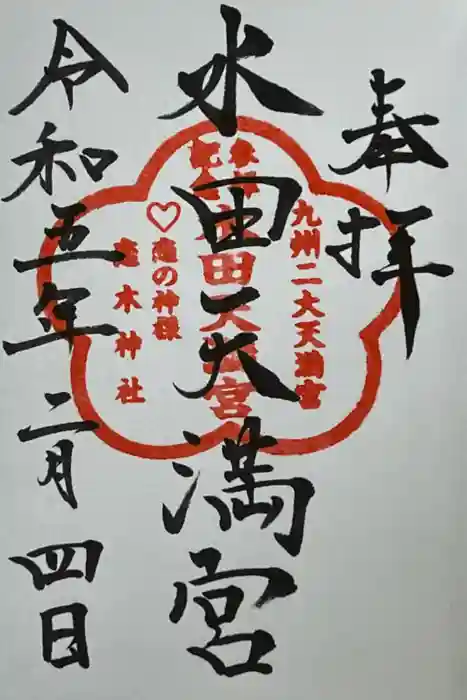 奉拝
九州二大天満宮
水田天満宮
水田天満宮
♡恋の神様
恋木神社
令和五年二月四日